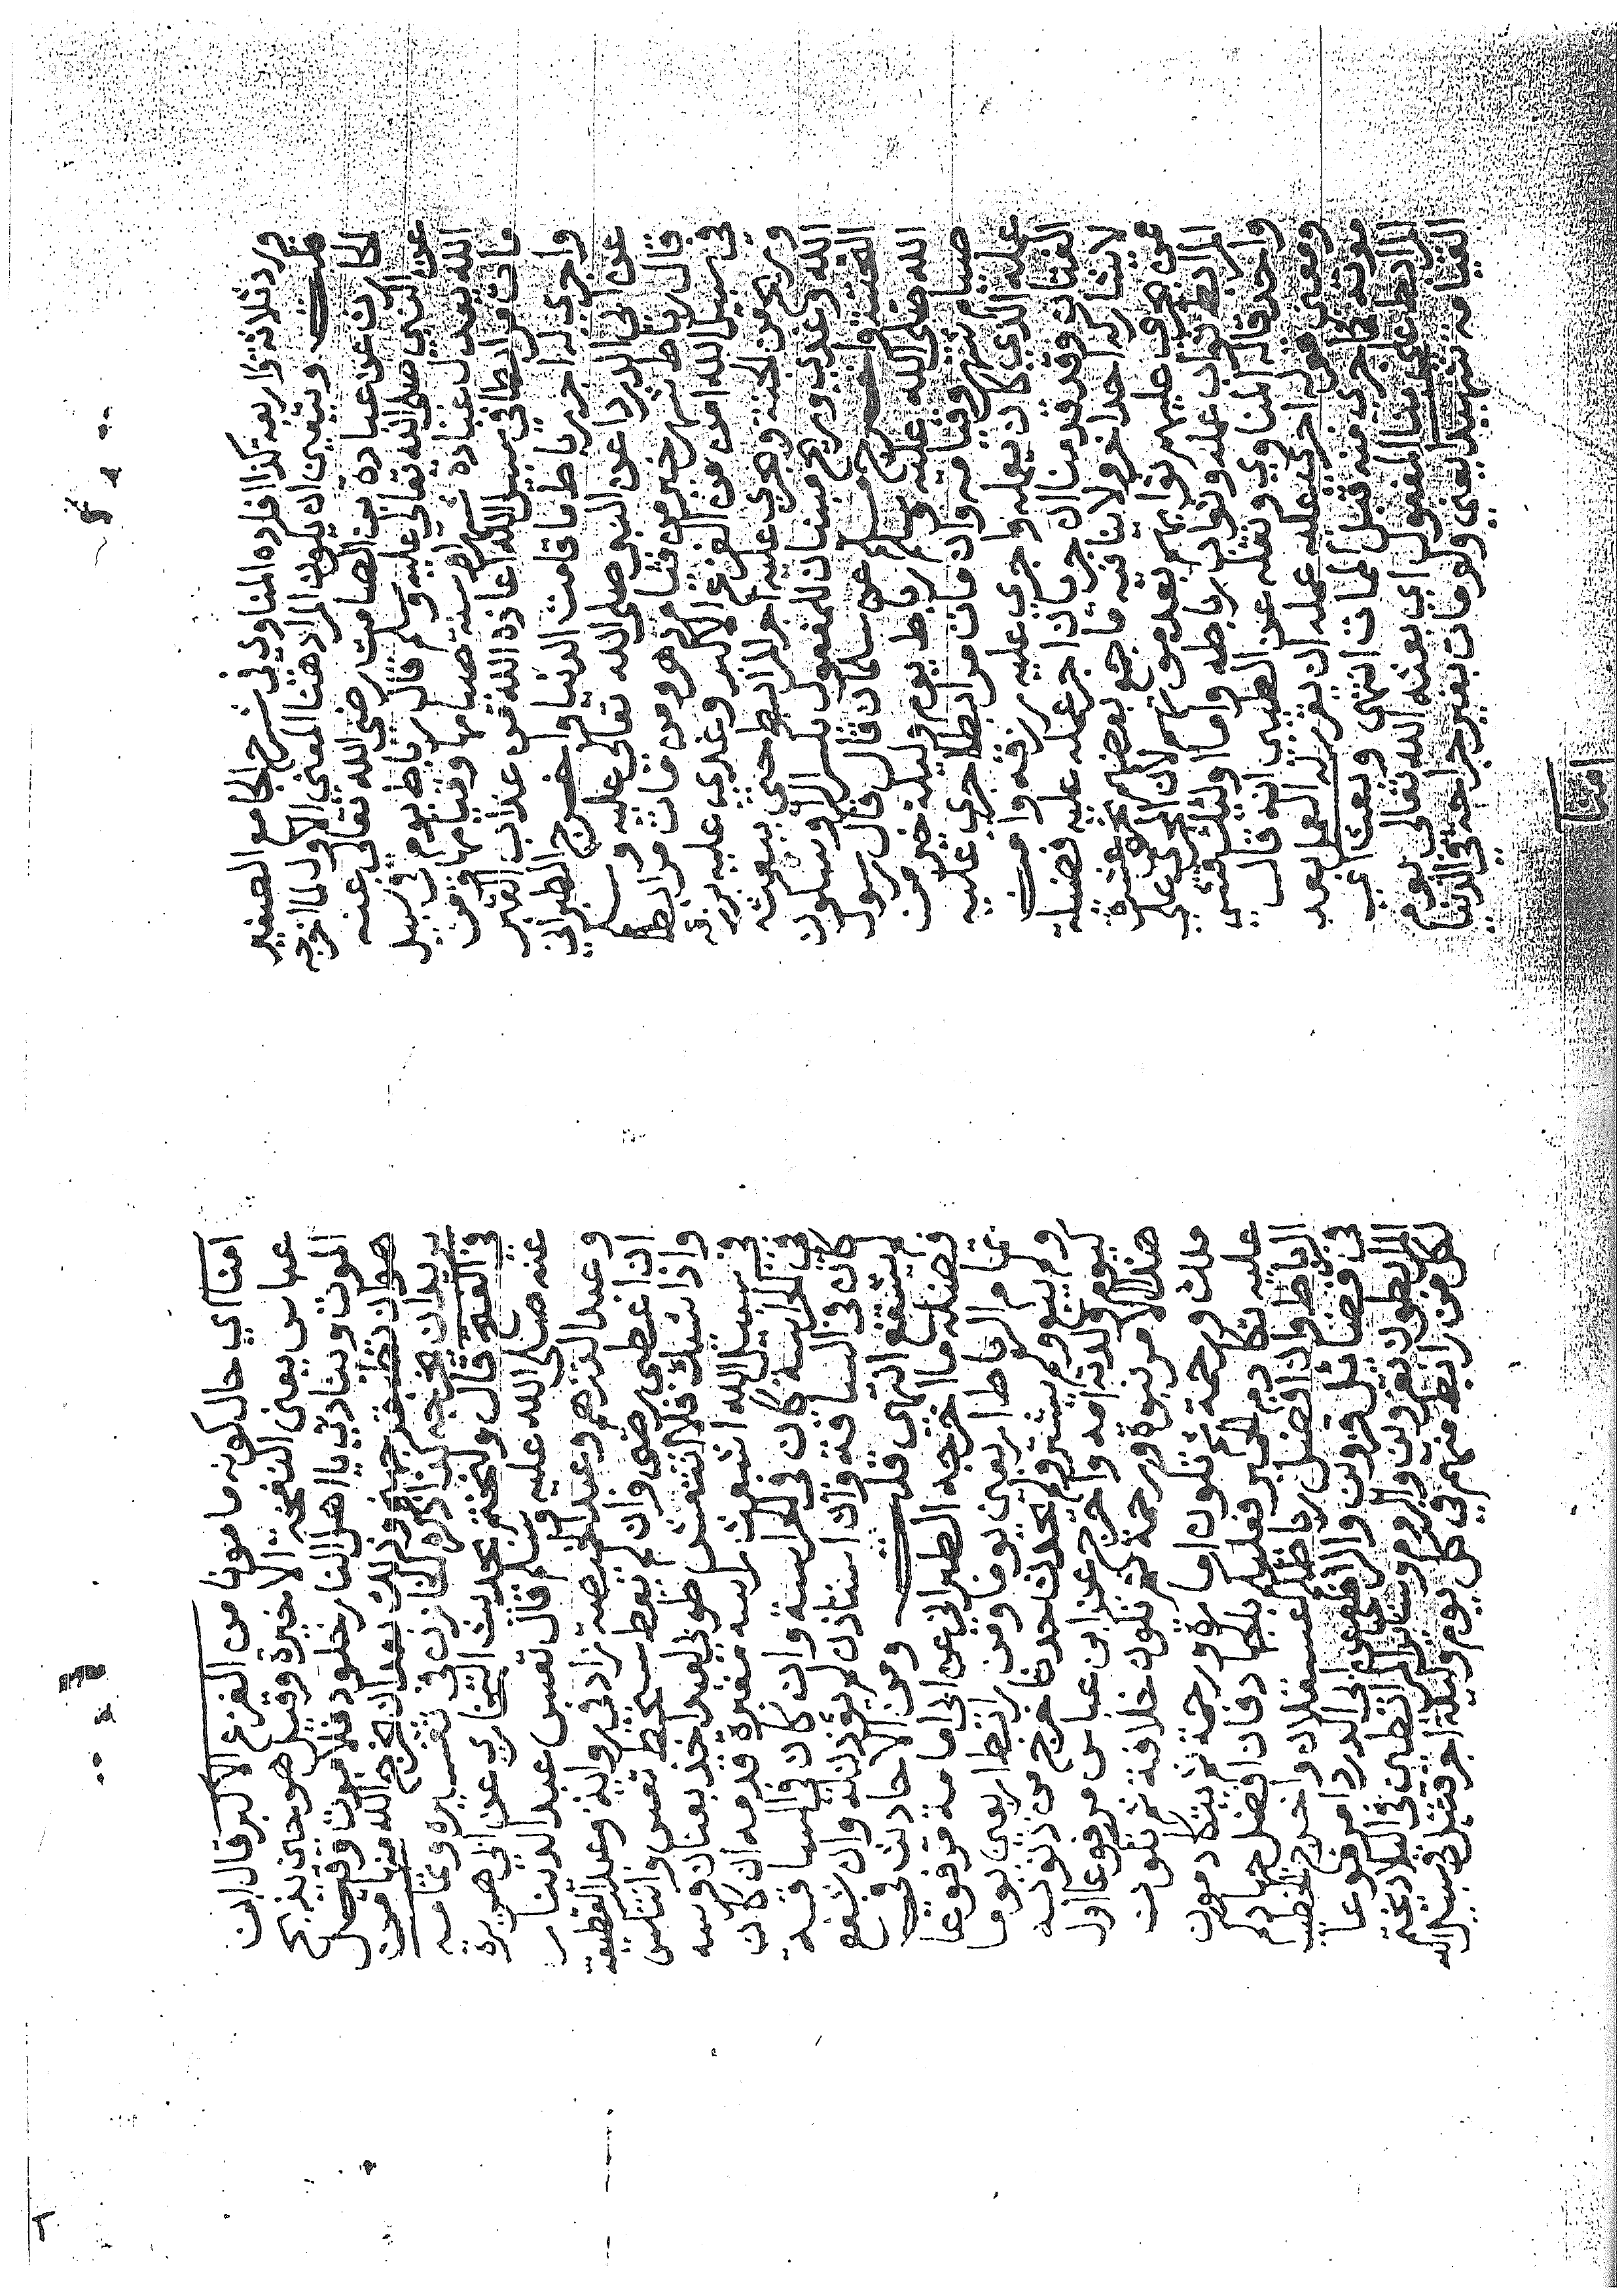 ورد ثلاثة واربعة كذا افاده المناوي في شرح الجامع الصغير
قلت وينبغي ان يكون المراد هنا المعنى الاول لما اخرجه
الحارث عن عبادة بن الصامت رضي الله تعالى عنه
عن النبي صلى الله تعالى عليه وسلم قال رباط يوم في سبيل
الله يعدل عبادة شهر او سنة صيامها وقيامها ومن
مات مرابطا في سبيل الله اعاذه الله من عذاب القبر
واجرى له اجر رباطه ما قامت الدنيا واخرج الطبراني
عن ابي الدردا عن النبي صلى الله تعالى عليه وسلم
قال رباط شهر خير من قيام دهر ومن مات مرابطا
في سبيل الله امن من الفزع الاكبر وغدي عليه برزقه
وريح من الجنة ويجري عليه اجر المرابط حتى يبعثه
الله وغدي وريح مبنيان للمفعول بكسر الراء وسكون
التحتية واخرج مسلم عن سلمان قال قال رسول
الله صلى الله عليه وسلم رباط يوم وليلة خير من
صيام شهر وقيامه وان مات مرابطا جرى عليه
عمله الذي كان يعمله واجري عليه رزقه وامن
الفتان وقد قدمنا ان جريان اجر عمله عليه فضيلة
لا يشاركه احد اخر ولا ينافيه ما جمع بعضهم نحو عشرة
من يجري عليهم ثوابهم بعد موتهم لان المجرى على
المرابط ثواب عمله وثواب رباطه واما اولئك فشي
واحد قاله المناوي ونقله عن الطيبي انه قال
ومعنى قوله اجرى عليه عمله ان يقدر له العمل بعد
موته كما جرى منه قبل الممات انتهى وبعث اي
المرابط على بنا المفعول اي بعثه الله تعالى يوم
القيامة شهيدا يعني ولو مات بغير جراحة في الدنيا
امنا
امنا اي حال كونه مامونا من الفزع الاكبر قال ابن
عباس يعني النفخة الاخيرة وقيل هو حين يذبح
الموت وينادي يا اهل النار خلود فلا موت وقيل
هو ان تطبق جهنم وذلك بعد ان يخرج الله منها من
يريد ان يخرجه كذا ذكره الخازن في تفسيره وتمامه
في قال ولنختم بحديث البخاري عن ابي هريرة
عنه صلى الله عليه وسلم قال تعس عبد الدينار
وعبد الدرهم وعبد الخميصة زاد في رواية وعبد القطيفة
ان اعطي رضي وان لم يعط سخط تعس وانتكس
واذا شيك فلا انتقش طوبى لعبد اخذ بعنان فرسه
في سبيل الله اشعث راسه مغبرة قدمه ان كان
في الحراسة كان في الحراسة وان كان في الساقة
كان في الساقة وان استاذن لم يؤذن له وان شفع
لم يشفع انتهى قلت ومن الاحاديث في
فضله ما اخرجه الطبراني عن ابي امامة مرفوعا
تمام الرباط اربعين يوما ومن رابط اربعين يوما
ولم يبع ولم يشتر ولم يحدث حدثا خرج من ذنوبه
كيوم ولدته امه واخرج عن ابن عباس مرفوعا اول
هذا الامر نبوة ورحمة ثم تكون خلافة ثم تكون
ملك ورحمة ثم تكون امارة ورحمة ثم يتكادمون
عليه تكادم الحمير فعليكم بالجهاد فان افضل جهادكم
الرباط وان افضل رباطكم عسقلان واخرج الخطيب
في فضائل قزوين والرافعي عن ابي الدردا مرفوعا
لكل من رابط منهم في كل يوم وليلة اجر قتيل في سبيل الله